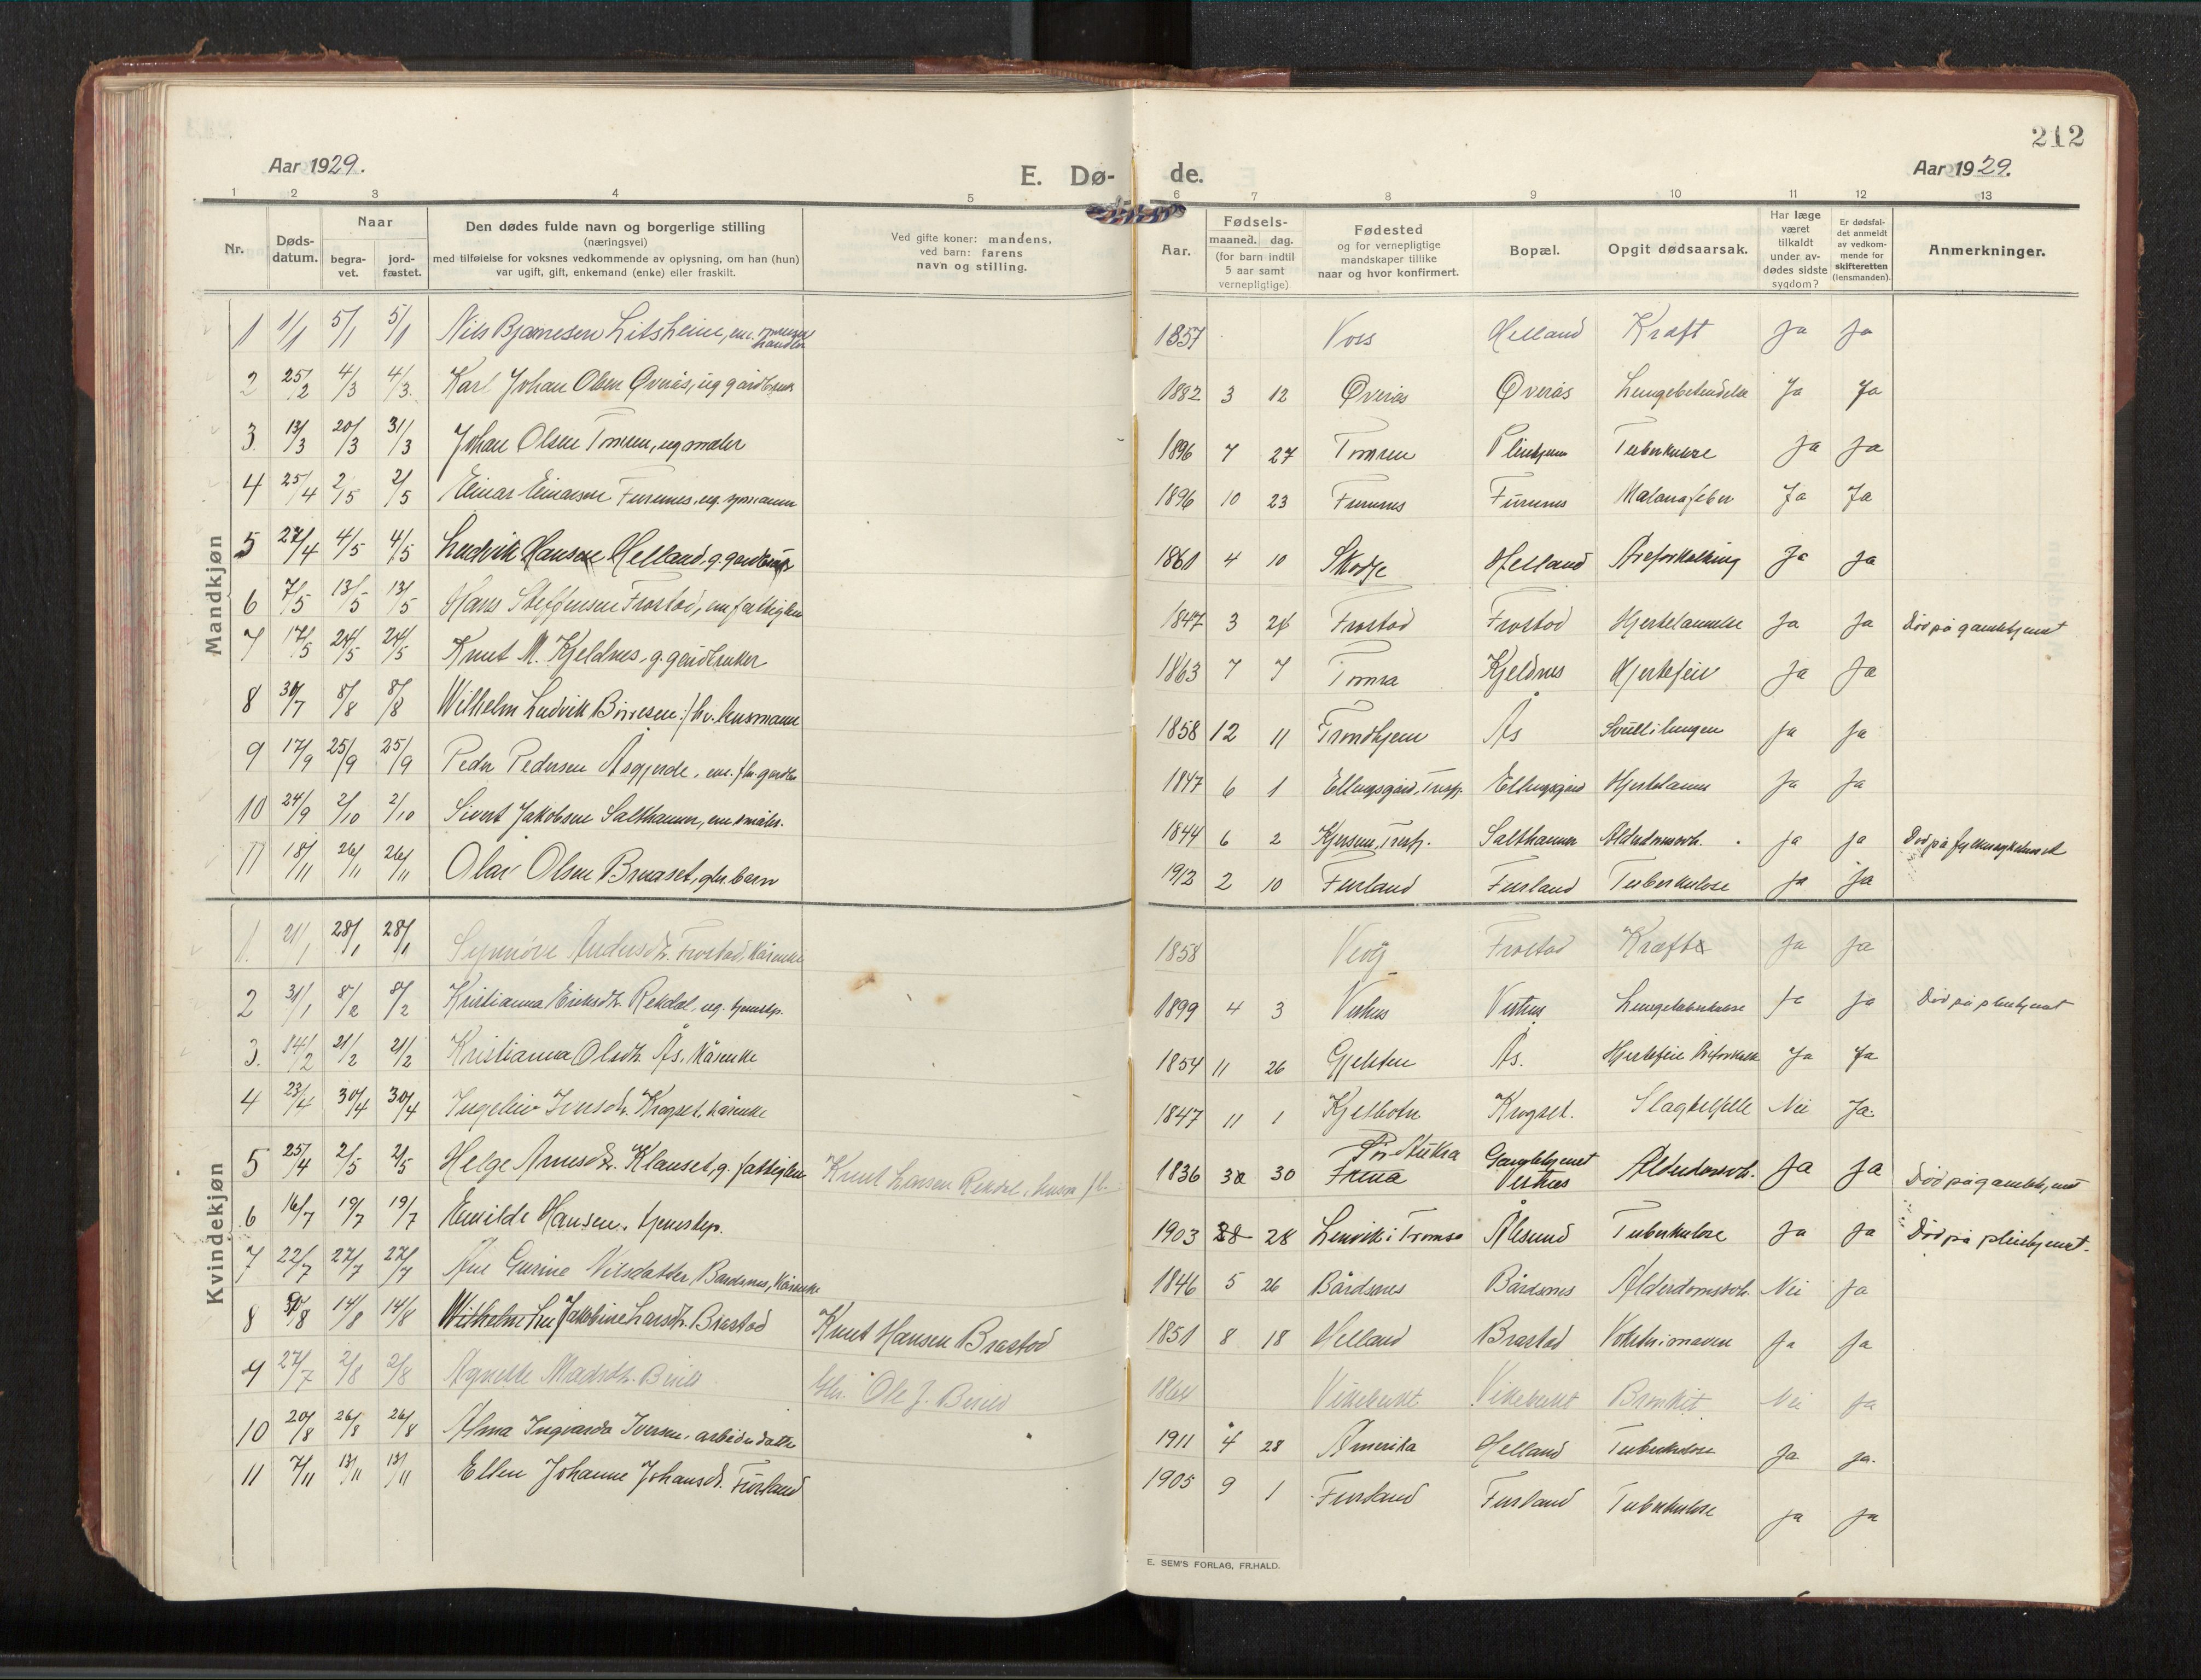 212
Aar 1929.
E. Dø- de.
Aar 1929.
1 2 3 4 5 6 7 8 9 10 11 12 13
Nr.
Døds-
datum.
Naar
begra-
vet.
jord-
fæstet.
Den dødes fulde navn og borgerlige stilling
(næringsvei)
med tilføielse for voksnes vedkommende av oplysning, om han (hun)
var ugift, gift, enkemand (enke) eller fraskilt.
Ved gifte koner: mandens,
ved barn: farens
navn og stilling.
Aar.
Fødsels-
maaned. dag.
(for barn indtil
5 aar samt
vernepligtige)
Fødested
og for vernepligtige
mandskaper tillike
naar og hvor konfirmert.
Bopæl.
Opgit dødsaarsak.
Har læge
været
tilkaldt
under av-
dødes sidste
sygdom?
Er dødsfal-
det anmeldt
av vedkom-
mende for
skifteretten
(lensmanden).
Anmerkninger.
Mandkjøn
1 1/1 5/1 5/1 Nils Litsheim, em. 1857 Voss Helland Kræft Ja Ja
2 25/2 4/3 4/3. Karl Johan Olsen Øverås, ug gårdbruk 1882 3 12 Øverås Øverås Lungebetendelse Ja Ja
3. 13/3 20/3 31/3 Johan Olsen Tomren, ug maler 1896 7 27 Tomren Pleiehjem Tuberkulose Ja Ja
4 25/4 2/5 2/5 Einar Einarsen Furunes, ug. sjømann 1896 10 23 Furunes Furunes Malariafeber Ja Ja
5 27/4 4/5 4/5 Ludvik Hansen Helland, g. gardbruk 1861 4 10 Skodje Helland Åreforkalkning Ja Ja
6 7/5 13/5 13/5 Hans Steffensen Frostad, em fattiglem 1847 3 Frostad Frostad Hjertelammelse Ja Ja Død på gamlehjemmet
7 17/5 24/5 24/5 Knut M. Kjeldnes, g. gårdbruker 1863 7 7 Tomra Kjeldnes Hjertefeil Ja Ja
8 30/7 8/8 8/8 Wilhelm Ludvik Børresen, fhv. lensmann 1858 12 11 Trondhjem Ås Svull i lungen Ja Ja
9 17/9 25/9 25/9 Peder Pedersen Åsgjerde, em. fhv. gardbr 1847 6 1 Ellingsgård, Tresfj. Ellingsgård Hjertelamm Ja Ja
10 24/9 2/10 2/10 Sivert Jakobsen Salthammer, em småbr. 1844 6 2 Kjersem, Tresfj. Salthammer Alderdomssvh. Ja Ja Død på fylkessykehuset
11 18/11 26/11 26/11 Olav Olsen Bruaset, gbr. barn 1912 2 10 Furland Furland Tuberkulose Ja Ja
Kvindekjøn
1. 21/1 28/1 28/1 Synnøve Andersdtr. Frostad, kårenke 1858 Vevg Frostad Kræft Ja Ja
2 31/1 8/2 8/2 Kristianna Eriksdtr. Rekdal, ug. tjenestep. 1899 4 3 Vestnes Vestnes Lungetuberkulose Ja Ja Død på pleiehjemmet
3. 14/2 21/2 21/2 Kristianna Olsdtr. Ås, kårenke 1854 11 26 Gjelsten Ås. Hjertefeil Åreforkalk Ja Ja
4 23/4 30/4 30/4 Ingeliv Iversdtr. Krogset, kårenke 1847 11 1 Kjelbotn Krogset. Slagtilfelle Nei Ja.
5 25/4 2/5 2/5 Helge Arnesdtr. Klauset, g. fattiglem Knut Larsen Rekdal, husm 1836 30 Sør Aukra Fræna Gamlehjemmet Vestnes Alderdomssvh. Ja Ja Død på gamlehjemmet
6 16/7 19/7 19/7 Emilde Hansen, tjenestep. 1903 28 Lenvik i Tromsø Ålesund Tuberkulose Ja Ja Død på pleiehjemmet.
7 22/7 27/7 27/7 Ane Gurine Nilsdatter, Bardsnes, kårenke 1846 5 26 Bårdsnes Bårdsnes Alderdomssvh. Nei Ja
8 8/8 14/8 14/8 Jakobine Larsdtr. Brastad Knut Hansen Brastad 1851 8 18 Velland Brastad Vokster i maven Ja Ja
9 27/7 2/8 2/8 Agnethe Madsdtr. Beill Gbr. Ole J. Beill 1864 Vikebukt Vikebukt Bronkit Nei Ja
10 20/8 26/8 26/8 Alma Ingvarda Iversen, arbeider datter 1911 4 28 Amerika Helland Tuberkulose Ja Ja.
11 7/11 13/11 13/11 Ellen Johanne Johansdt. Furland 1905 9 1 Furland Furland Tuberkulose Ja Ja
E. SEM'S FORLAG, FR.HALD.